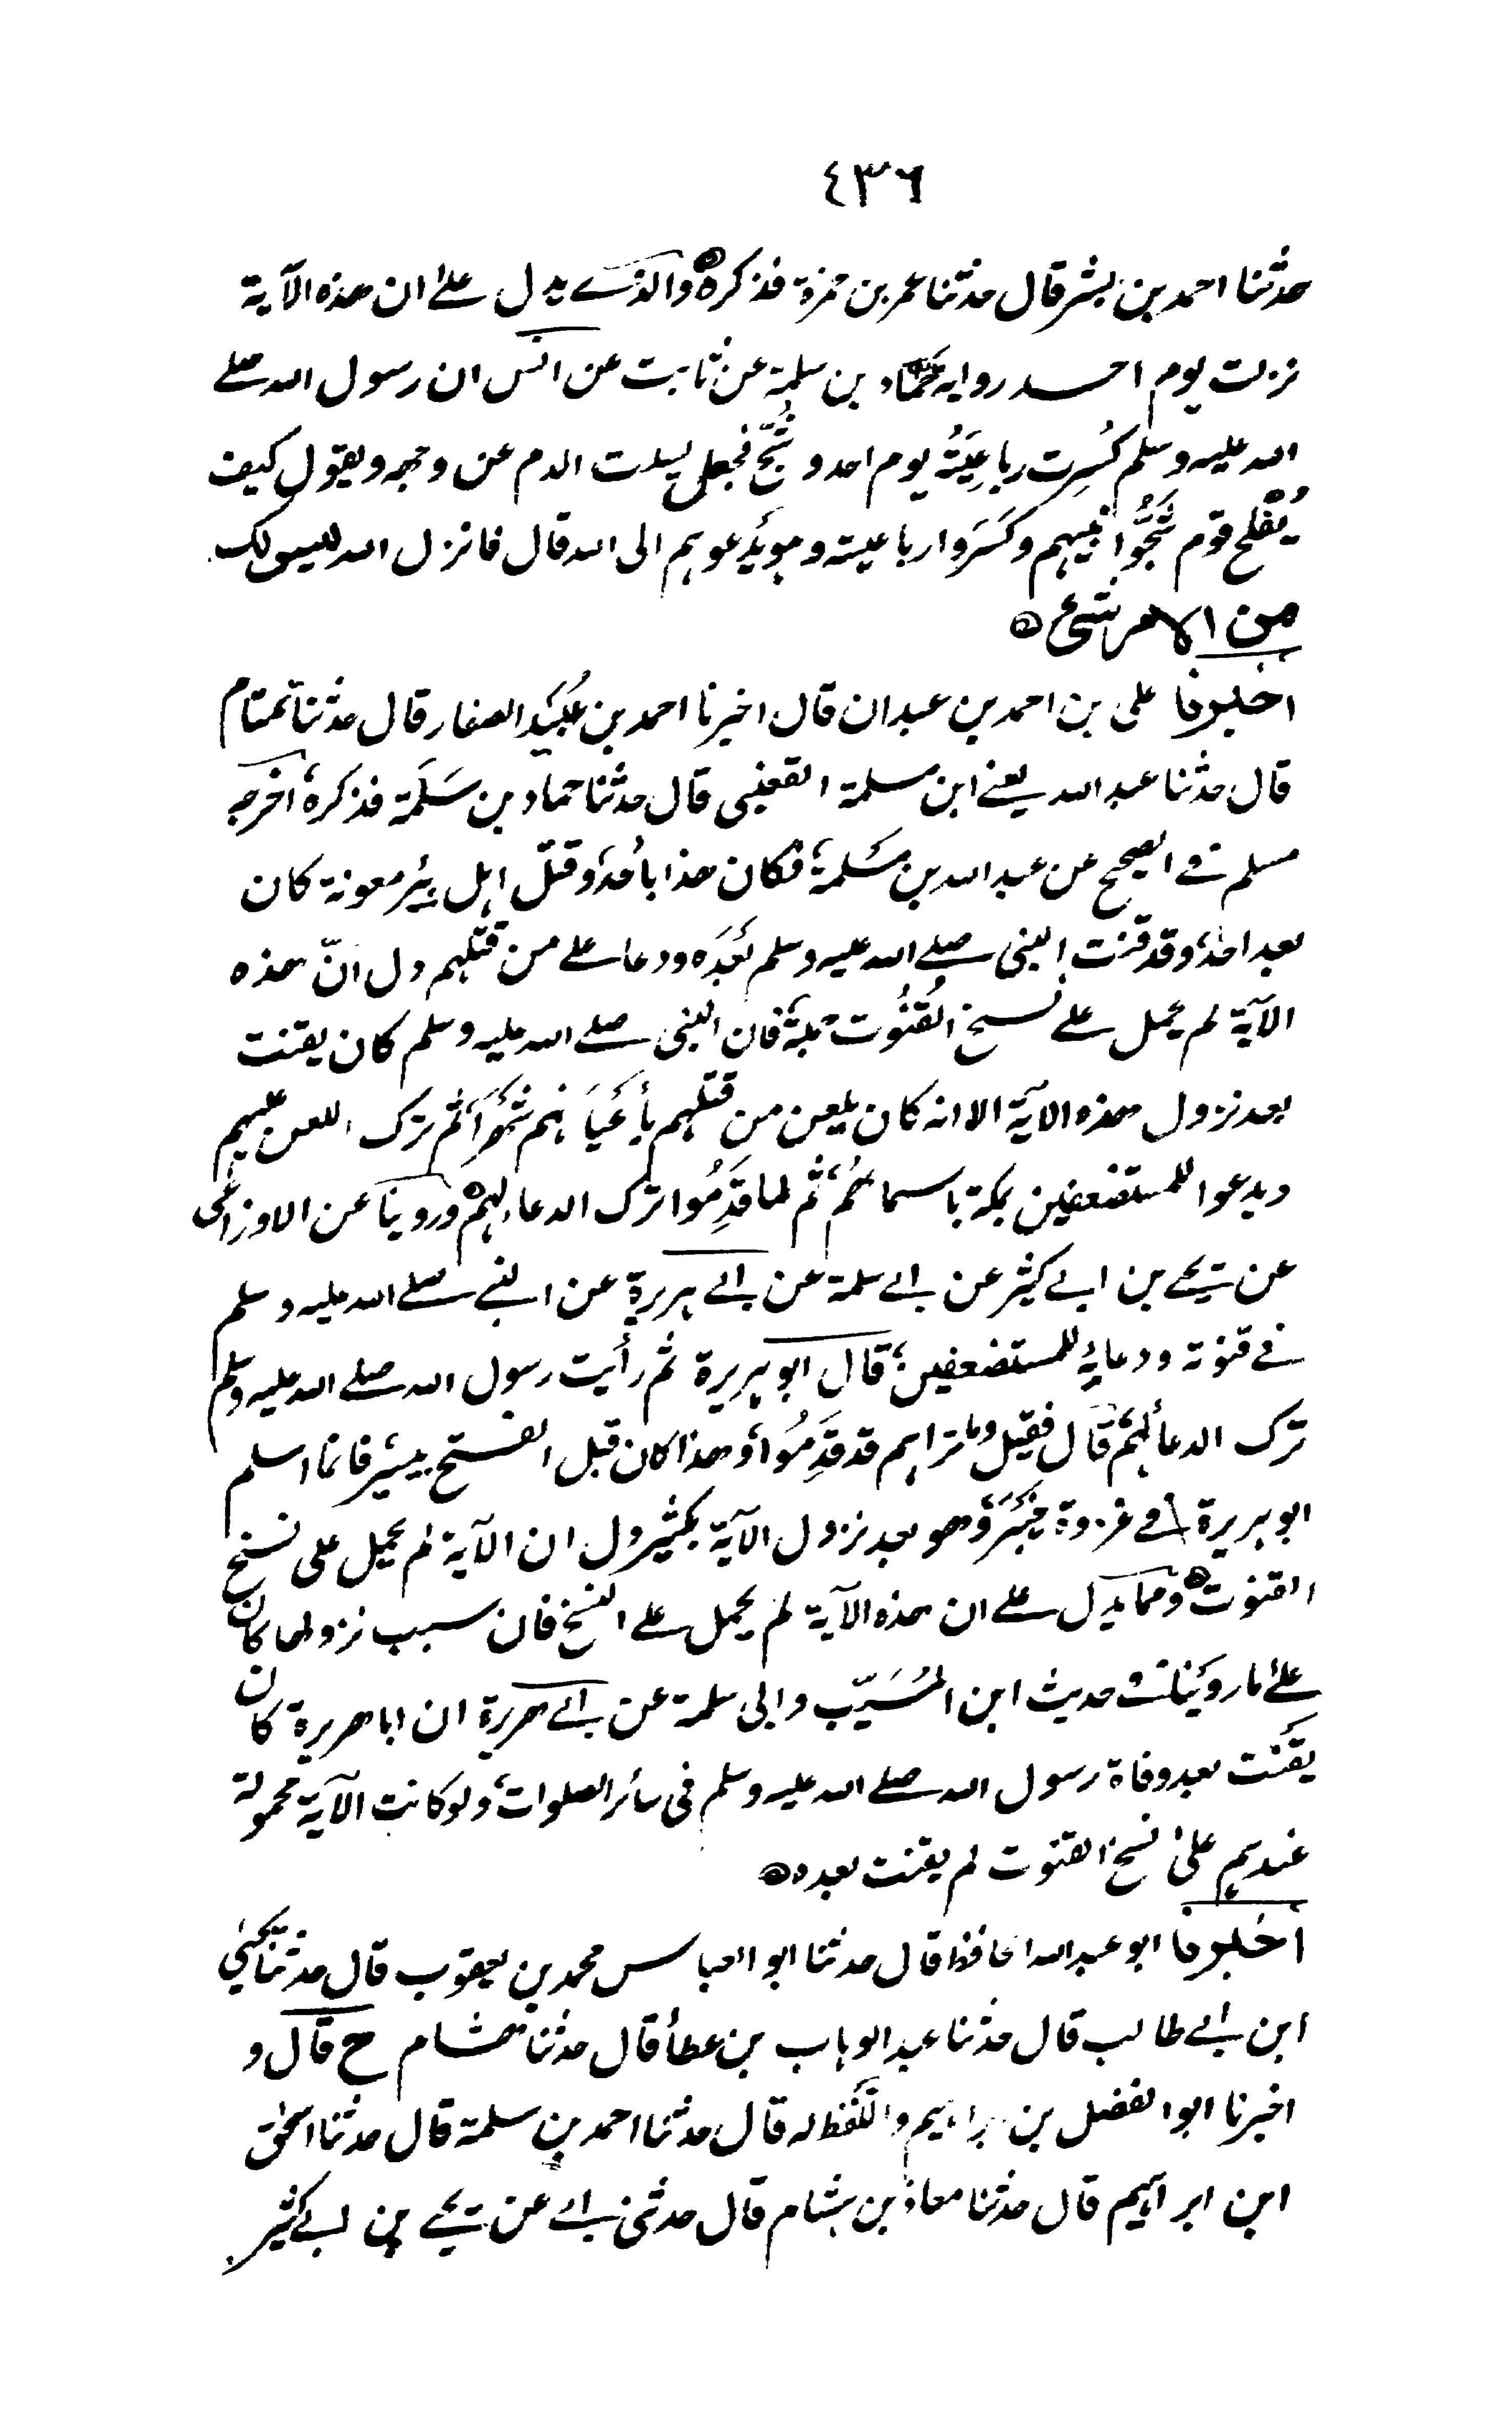 ٤٣٦
حدثنا احمد بن بشر قال حدثنا عمر بن حمزة فذكره والذی یدل علیٰ ان هذه الآیة
نزلت یوم احد روایه حماد بن سلمة عن ثابت عن انس ان رسول الله صلے
الله علیه وسلم كُسِرت رباعِیَتُه یوم احد و شُجّ فجعل یسلت الدم عن وجهه ویقول كیف
یُفْلح قوم شَجُّوا نبیهم وكَسَروا رباعیته وهو یَدعوهم الی الله قال فانزل الله لیس لك
من الامر شئ
اخبرنا علی بن احمد بن عبدان قال اخبرنا احمد بن عُبَیْد الصفار قال حدثنا تمتام
قال حدثنا عبد الله یعنے ابن مسلمة القعنبی قال حدثنا حماد بن سَلَمَة فذكره، اخرجه
مسلم فی الصحیح عن عبد الله بن مَسْلمة، فكان هذا باُحد، وقتل اهل بئر معونة كان
بعد احد، وقد قنت النبی صلے الله علیه وسلم بَعْدَه ودعا علے من قتلهم دل انّ هذه
الآیة لم یحمل علے نسخ القُنُوت جملة، فان النبی صلے الله علیه وسلم كان یقنت
بعد نزول هذه الآیة الا انه كان یلعن من قتلهم بأعْیَانهم شَهْرًا ثم ترك اللعن علیهم
ویدعوا للمستضعفین بمكة باسمائهم، ثم لما قَدِمُوا ترك الدعاء لهم وروینا عن الاوزاعی
عن یحیے بن ابے كثیر عن ابے سلمة عن ابے هریرة عن النبے صلے الله علیه وسلم
فے قنوته ودعایهٖ للمستضعفین؛ قال ابو هریرة ثم رأیت رسول الله صلے الله علیه وسلم
ترك الدعاء لهم، قال فقیل وما تراهم قد قَدِمُوا، وهذا كان قبل الفتح بیسیر فانما اسلم
ابو هریرة فی غزوة خَیْبَر، وهو بعد نزول الآیة بكثیر دل ان الآیة لم یحمل علی نسخ
القنوت ومما یدل علے ان هذه الآیة لم یحمل علے النسخ فان سبب نزولها كان
علےٰ ما رویْنا فے حدیث ابن المُسَیّب وابی سلمة عن ابے هریرة ان ابا هریرة كان
یقنُت بعد وفاة رسول الله صلے الله علیه وسلم فی سائر الصلوات، ولو كانت الآیة محمولة
عندهم علیٰ نسخ القنوت لم یقنت بعده
اخبرنا ابو عبد الله الحافظ قال حدثنا ابو العباس محمد بن یعقوب قال حدثنا یحییٰ
ابن ابے طالب قال حدثنا عبد الوهاب بن عطاء قال حدثنا هشام ح قال و
اخبرنا ابو الفضل بن ابراهیم واللَّفظ له قال حدثنا احمد بن سلمة قال حدثنا اسحٰق
ابن ابراهیم قال حدثنا معاذ بن هشام قال حدثنی ابے عن یحیے بن ابے كثیر